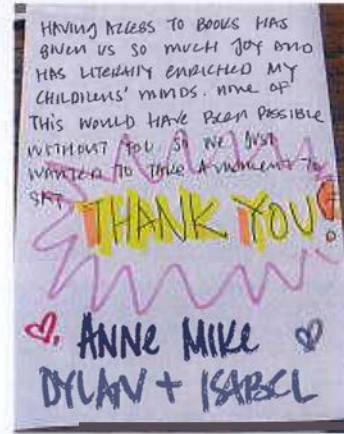 HAVING ACCESS TO BOOKS HAS
GIVEN US SO MUCH JOY AND
HAS LITERALLY ENRICHED MY
CHILDRENS' MINDS. NONE OF
THIS WOULD HAVE BEEN POSSIBLE
WITHOUT YOU SO WE JUST
WANTED TO TAKE A MOMENT TO
SAY
THANK YOU!
ANNE MIKE
DYLAN + ISABEL